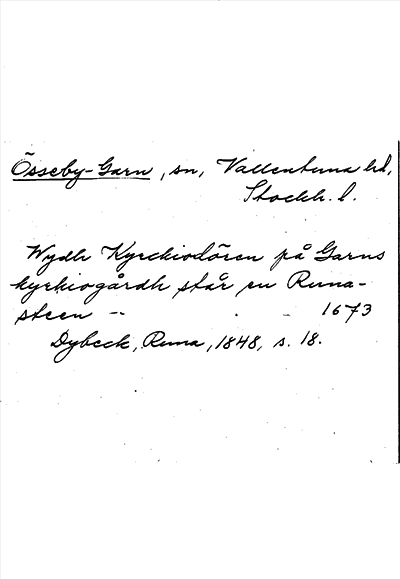 Össeby-Garn, sn, Vallentuna hd,
Stockh. l.
Wydh Kyrckiodören på Garns
kyrkiogårdh står en Runa-
steen -- 1673
Dybeck, Runa, 1848, s. 18.